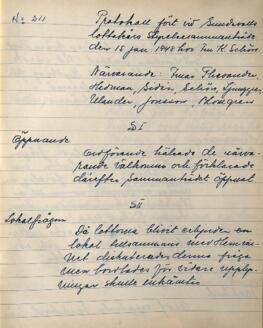 No 211
Protokoll fört vid Sundsvalls
lottakårs Styrelsesammanträde
den 15 jan. 1948 hos Fru K
Närvarande: Fruar
Hedman, Sidén,
Ulander, Jonsson, Blomgren
§ I
Öppnande
Ordförande hälsade de närva-
rande Välkomna och förklarade
därefter sammanträdet öppnat
§ II
Lokalfrågan
Då lottorna blivit erbjuden en
lokal tillsammans med Hemvär-
net diskuterades denna fråga
men bordlades för vidare upply-
ningar skulle enhämtas